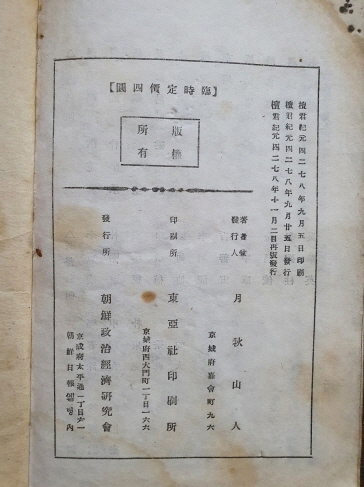 檀君紀元四二七八年九月五日印刷
檀君紀元四二七八年九月廿五日發行
檀君紀元四二七八年十一月二日再版發行
【臨時定價四圓】
版權
所有
著者兼
發行人
月秋山人
京城府嘉會町九六
印刷所
東亞社印刷所
京城府西大門町一丁目一六六
發行所
朝鮮政治經濟硏究會
京城府太平通一丁目六一
朝鮮日報社內